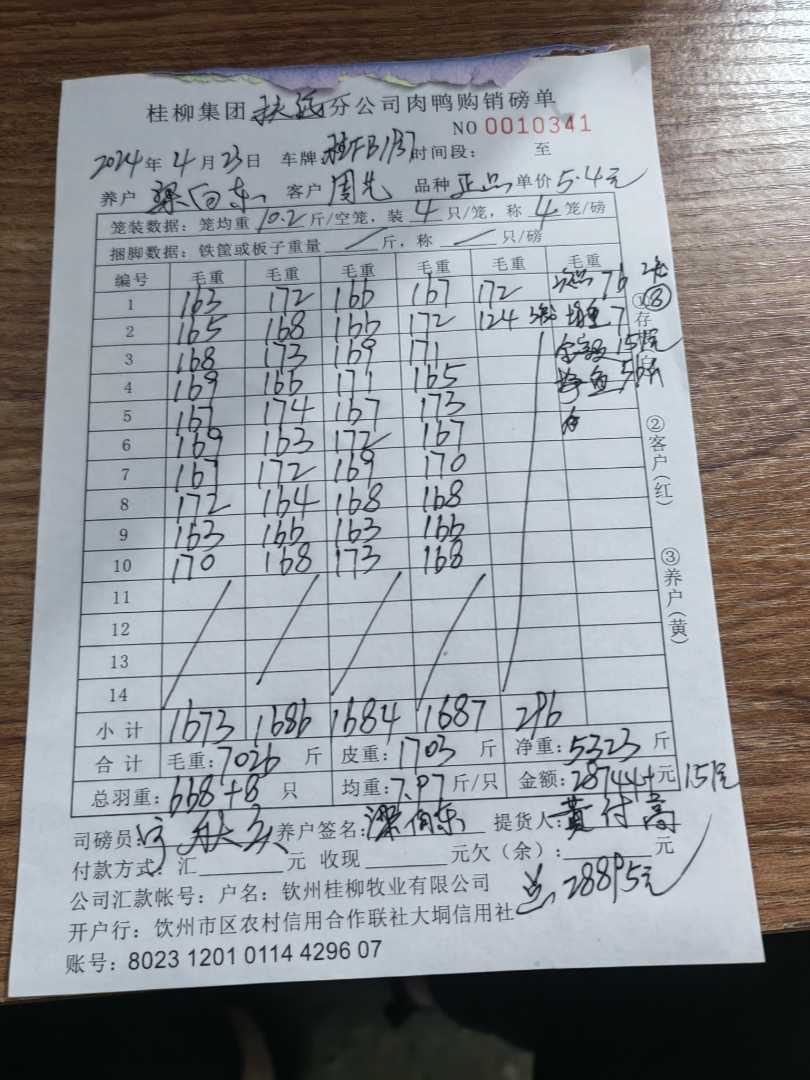 桂柳集团扶绥分公司肉鸭购销磅单
NO 0010341
2024年4月23日 车牌:桂FB1137时间段: 至
养户 梁向东 客户 周先 品种 正品 单价5.4元
笼装数据: 笼均重10.2斤/空笼, 装4只/笼, 称4笼/磅
捆脚数据: 铁筐或板子重量 / 斤, 称 / 只/磅
编号 毛重 毛重 毛重 毛重 毛重 毛重
1 163 172 166 167 172 76
2 165 168 166 172 124 7
3 168 173 169 171 151元
4 169 166 171 165
5 167 174 167 173
6 169 163 172 167
7 167 172 169 170
8 172 164 168 168
9 163 166 163 166
10 170 168 173 168
11
12
13
14
小计 1673 1686 1684 1687 296
合计 毛重:7026斤 皮重:1703斤 净重:5323斤
总羽重:668+8只 均重:7.97斤/只 金额:28744元 151元
司磅员: 养户签名:梁向东 提货人:黄付高
付款方式:汇 元 收现 元欠(余): 元
总28895元
公司汇款帐号: 户名: 钦州桂柳牧业有限公司
开户行: 钦州市区农村信用合作联社大垌信用社
账号: 8023 1201 0114 4296 07
①存
⑧
②客户(红)
③养户(黄)